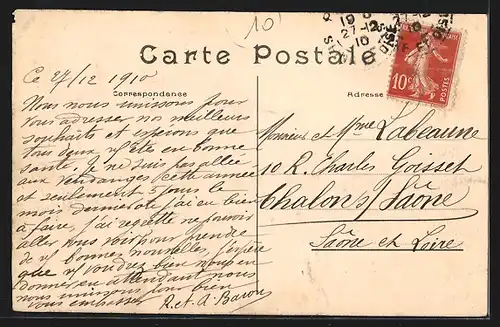 10
27-12
10
Carte Postale
10c
POSTES
Ce 27/12 1910
Correspondance
Adresse
Nous nous unissons pour
vous adresser nos meilleurs
souhaits et espérons que
tous deux êtes en bonne
santé. Je ne suis pas allée
aux vendanges cette année
et seulement 5 jours le
mois j'ai eu bien
à faire, j'ai regretté ne pouvoir
aller vous voir pour prendre
de bonnes nouvelles, j'espère
que voudrez bien nous en
donner, en attendant nous
nous unissons pour bien
vous embrasser
R. et A. Baron
Monsieur et Mme Labeaune
10 R. Charles Goisset
Chalon s/ Saône
Saône et Loire